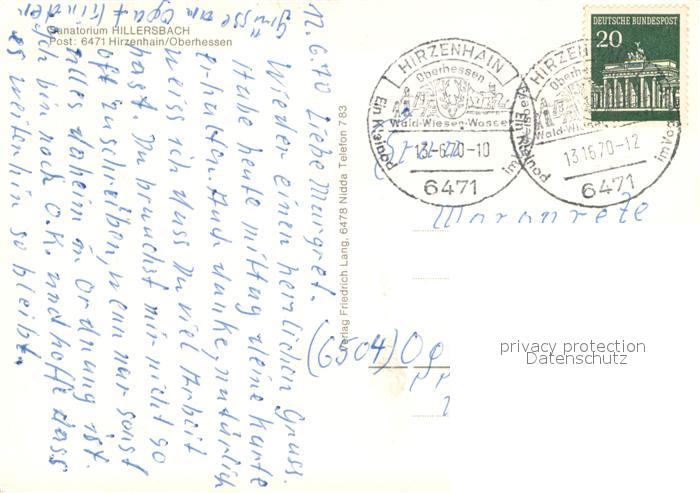 Sanatorium HILLERSBACH
Post: 6471 Hirzenhain/Oberhessen
12.6.70 Liebe Margret.
Wieder einen herzlichen Gruss.
Habe heute mittag deine Karte
erhalten. Auch danke, natürlich
weiss ich dass du viel Arbeit
hast. Du brauchst mir nicht so
oft zuschreiben, wenn nur sonst
alles daheim in Ordnung ist.
Ich bin noch O.K. und hoffe dass
es weiterhin so bleibt.
Grüsse an
Verlag Friedrich Lang, 6478 Nidda Telefon 783
HIRZENHAIN
Oberhessen
Wald-Wiesen-Wasser
13.-6.70-10
6471
HIRZEN
Oberh
Wald-Wies
13.-6.70-12
6471
DEUTSCHE BUNDESPOST
20
(6504) Op
privacy protection
Datenschutz